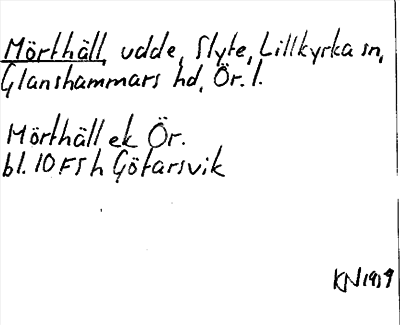 Mörthäll, udde, Slyte, Lillkyrka sn,
Glanshammars hd, Ör. l.
Mörthäll ek Ör.
bl. 10 FSh Götarsvik
KN 1919